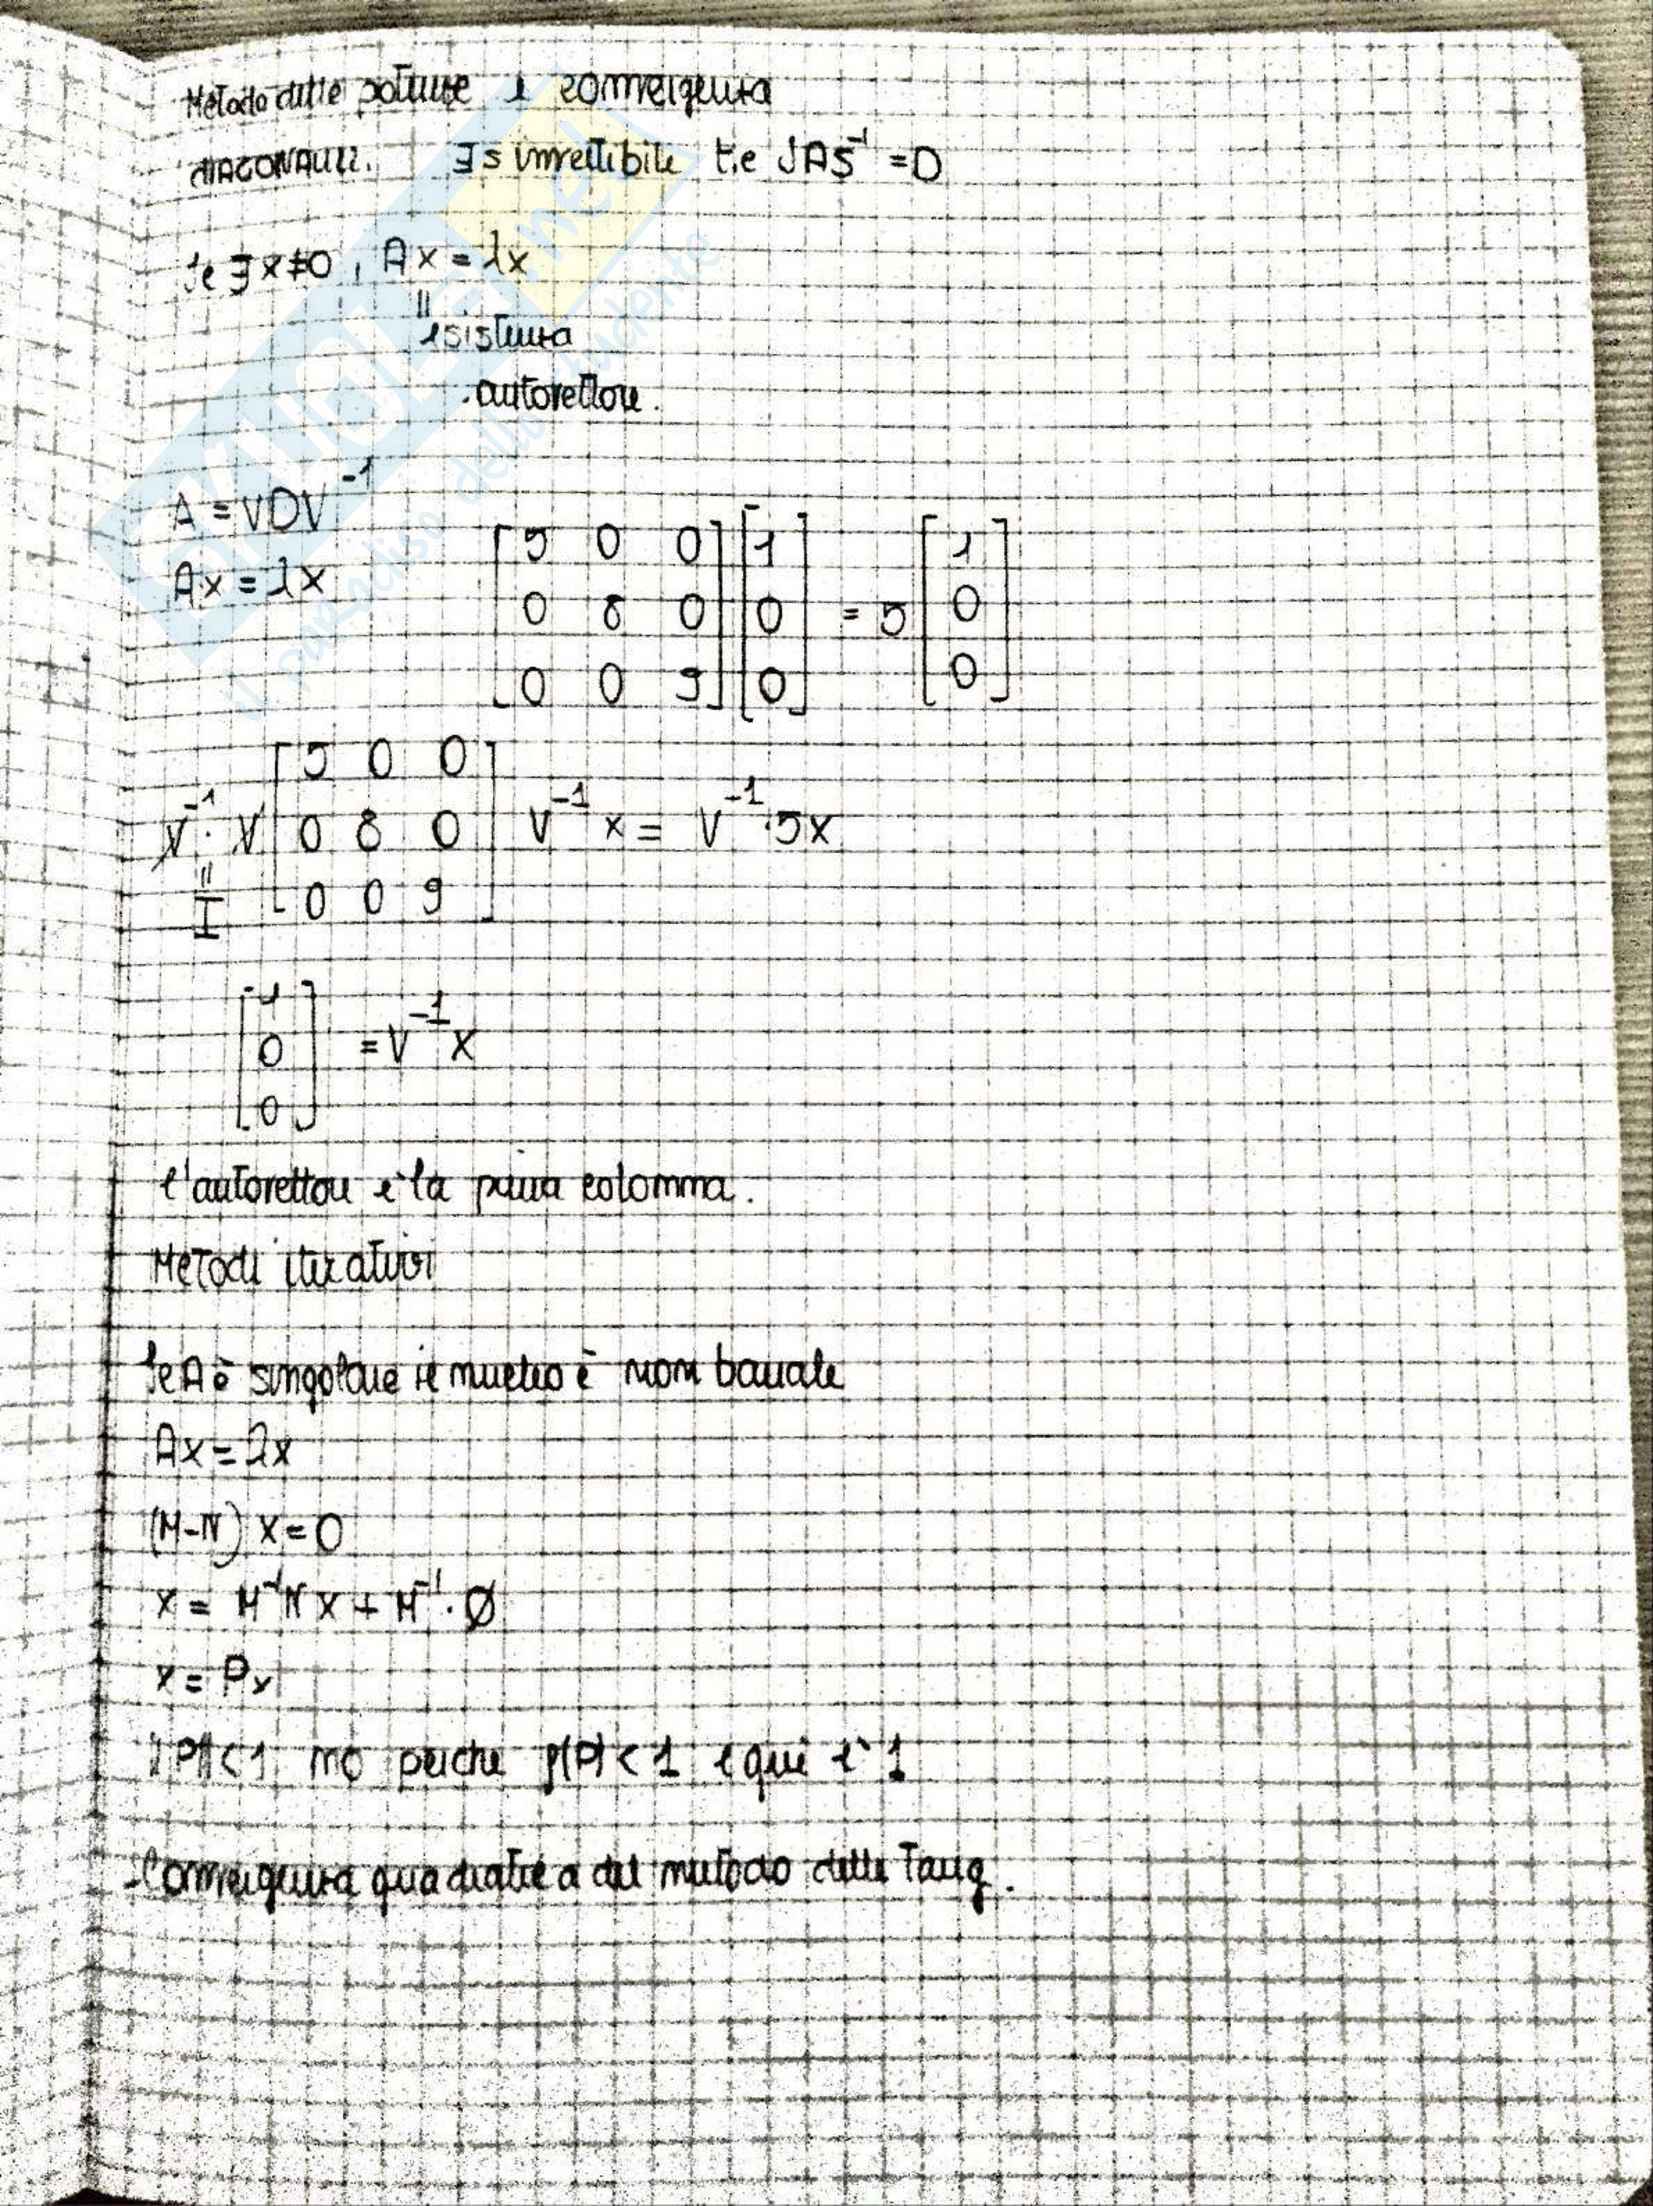 Metodo delle potenze e convergenza
DIAGONALIZ. ∃ S invertibile t.c SAS⁻¹ = D
Se ∃ x≠0, Ax = λx
"
esistenza
autovettore.
A = VDV⁻¹
Ax = λx
[5 0 0] [1] [1]
[0 8 0] [0] = 5 [0]
[0 0 9] [0] [0]
[5 0 0]
V⁻¹. V [0 8 0] V⁻¹ x = V⁻¹.5x
[0 0 9]
"
I
[1]
[0] = V⁻¹ x
[0]
l'autovettore è la prima colonna.
Metodi iterativi
Se A è singolare il nucleo è non banale
Ax = λx
(M-N) x = 0
x = M⁻¹N x + M⁻¹. Ø
x = Px
||P|| < 1 no perchè ρ(P) < 1 e qui è 1
Convergenza quadratica del metodo delle Tang.